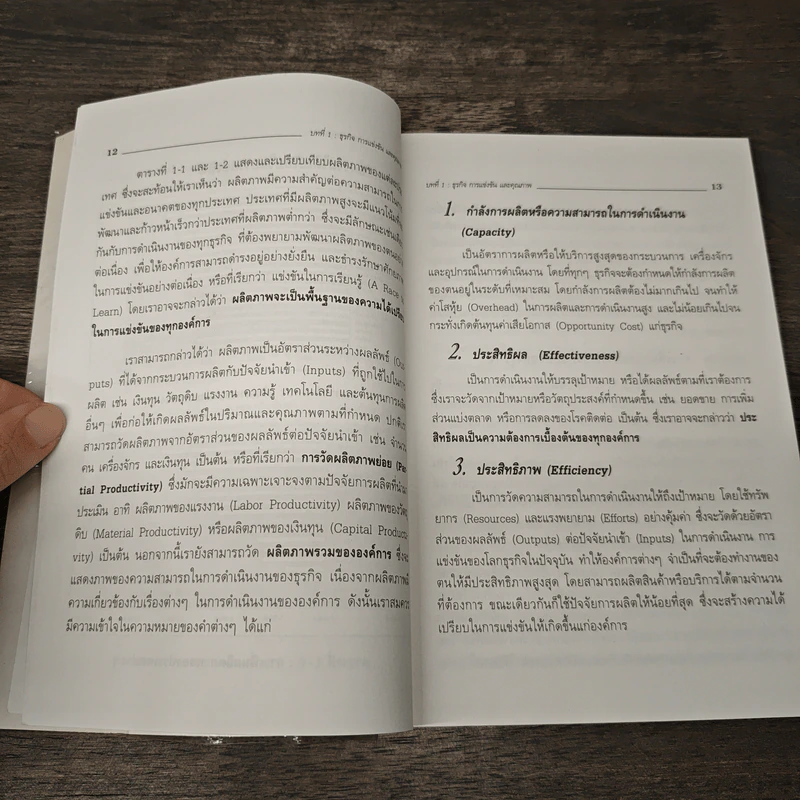 12
บทที่ 1 : ธุรกิจ การแข่งขัน
ตารางที่ 1-1 และ 1-2 แสดงและเปรียบเทียบผลิตภาพของแต่ละ
เทศ ซึ่งจะสะท้อนให้เราเห็นว่า ผลิตภาพมีความสำคัญต่อความสามารถใน
แข่งขันและอนาคตของทุกประเทศ ประเทศที่มีผลิตภาพสูงจะมีแนวโน้ม
พัฒนาและก้าวหน้าเร็วกว่าประเทศที่ผลิตภาพต่ำกว่า ซึ่งจะมีลักษณะเช่น
กันกับการดำเนินงานของทุกธุรกิจ ที่ต้องพยายามพัฒนาผลิตภาพของตน
ต่อเนื่อง เพื่อให้องค์การสามารถดำรงอยู่อย่างยั่งยืน และธำรงรักษา
ในการแข่งขันอย่างต่อเนื่อง หรือที่เรียกว่า แข่งขันในการเรียนรู้ (A Race
Learn) โดยเราอาจจะกล่าวได้ว่า ผลิตภาพจะเป็นพื้นฐานของความได้เปรียบ
ในการแข่งขันของทุกองค์การ
เราสามารถกล่าวได้ว่า ผลิตภาพเป็นอัตราส่วนระหว่างผลลัพธ์ (Out
puts) ที่ได้จากกระบวนการผลิตกับปัจจัยนำเข้า (Inputs) ที่ถูกใช้ไปใน
ผลิต เช่น เงินทุน วัตถุดิบ แรงงาน ความรู้ เทคโนโลยี และต้นทุนการผลิต
อื่นๆ เพื่อก่อให้เกิดผลลัพธ์ในปริมาณและคุณภาพตามที่กำหนด ปกติ
สามารถวัดผลิตภาพจากอัตราส่วนของผลลัพธ์ต่อปัจจัยนำเข้า เช่น จำนวน
คน เครื่องจักร และเงินทุน เป็นต้น หรือที่เรียกว่า การวัดผลิตภาพย่อย (Par
tial Productivity) ซึ่งมักจะมีความเฉพาะเจาะจงตามปัจจัยการผลิตที่นำมา
ประเมิน อาทิ ผลิตภาพของแรงงาน (Labor Productivity) ผลิตภาพของวัตถุ
ดิบ (Material Productivity) หรือผลิตภาพของเงินทุน (Capital Producti
vity) เป็นต้น นอกจากนี้เรายังสามารถวัด ผลิตภาพรวมขององค์การ ซึ่ง
แสดงภาพของความสามารถในการดำเนินงานของธุรกิจ เนื่องจากผลิตภาพมี
ความเกี่ยวข้องกับเรื่องต่างๆ ในการดำเนินงานขององค์การ ดังนั้นเราสมควร
มีความเข้าใจในความหมายของคำต่างๆ ได้แก่
บทที่ 1 : ธุรกิจ การแข่งขัน และคุณภาพ
13
1. กำลังการผลิตหรือความสามารถในการดำเนินงาน
(Capacity)
เป็นอัตราการผลิตหรือให้บริการสูงสุดของกระบวนการ เครื่องจักร
และอุปกรณ์ในการดำเนินงาน โดยที่ทุกๆ ธุรกิจจะต้องกำหนดให้กำลังการผลิต
ของตนอยู่ในระดับที่เหมาะสม โดยกำลังการผลิตต้องไม่มากเกินไป จนทำให้
ค่าโสหุ้ย (Overhead) ในการผลิตและการดำเนินงานสูง และไม่น้อยเกินไปจน
กระทั่งเกิดต้นทุนค่าเสียโอกาส (Opportunity Cost) แก่ธุรกิจ
2. ประสิทธิผล (Effectiveness)
เป็นการดำเนินงานให้บรรลุเป้าหมาย หรือได้ผลลัพธ์ตามที่เราต้องการ
ซึ่งเราจะวัดจากเป้าหมายหรือวัตถุประสงค์ที่กำหนดขึ้น เช่น ยอดขาย การเพิ่ม
ส่วนแบ่งตลาด หรือการลดลงของโรคติดต่อ เป็นต้น ซึ่งเราอาจจะกล่าวว่า ประ
สิทธิผลเป็นความต้องการเบื้องต้นของทุกองค์การ
3. ประสิทธิภาพ (Efficiency)
เป็นการวัดความสามารถในการดำเนินงานให้ถึงเป้าหมาย โดยใช้ทรัพ
ยากร (Resources) และแรงพยายาม (Efforts) อย่างคุ้มค่า ซึ่งจะวัดด้วยอัตรา
ส่วนของผลลัพธ์ (Outputs) ต่อปัจจัยนำเข้า (Inputs) ในการดำเนินงาน การ
แข่งขันของโลกธุรกิจในปัจจุบัน ทำให้องค์การต่างๆ จำเป็นที่จะต้องทำงานของ
ตนให้มีประสิทธิภาพสูงสุด โดยสามารถผลิตสินค้าหรือบริการได้ตามจำนวน
ที่ต้องการ ขณะเดียวกันก็ใช้ปัจจัยการผลิตให้น้อยที่สุด ซึ่งจะสร้างความได้
เปรียบในการแข่งขันให้เกิดขึ้นแก่องค์การ